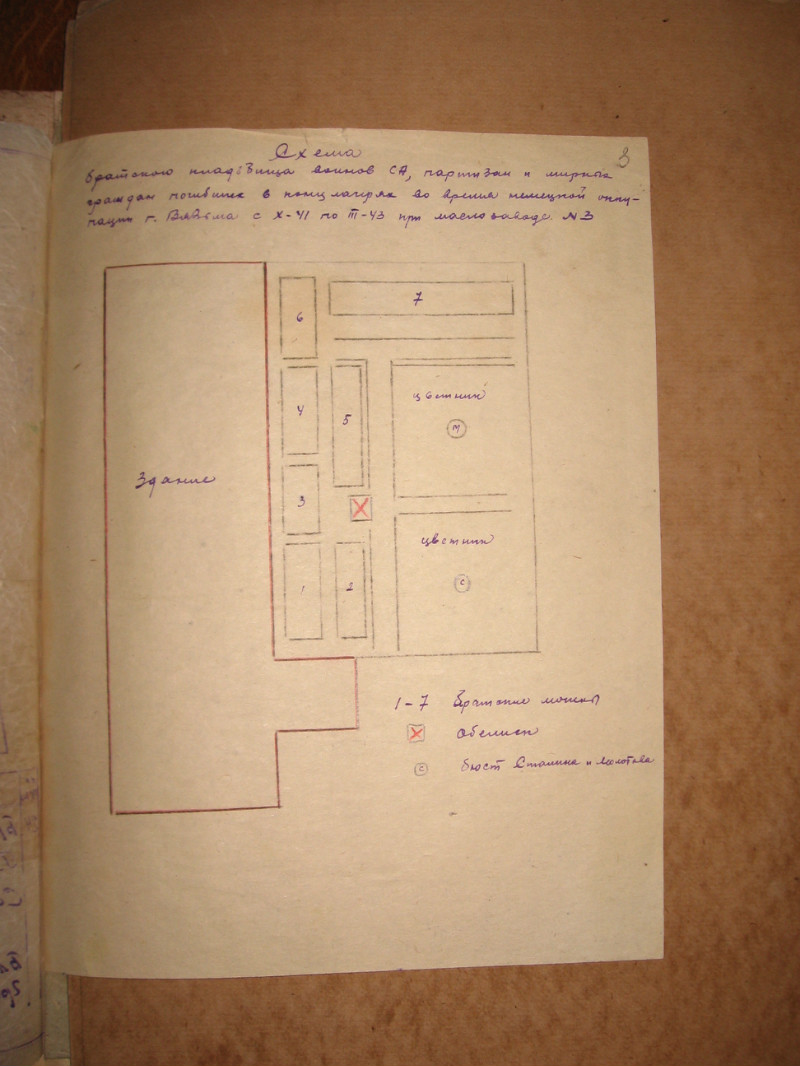 3
Схема
братского кладбища воинов СА, партизан и мирных
граждан погибших в концлагерях во время немецкой окку-
пации г. Вязьма с X-41 по III-43 при маслозаводе N 3
6
7
4
5
цветник
М
Здание
3
цветник
1
2
С
1-7 Братские могилы
Обелиск
С бюст Сталина и Молотова